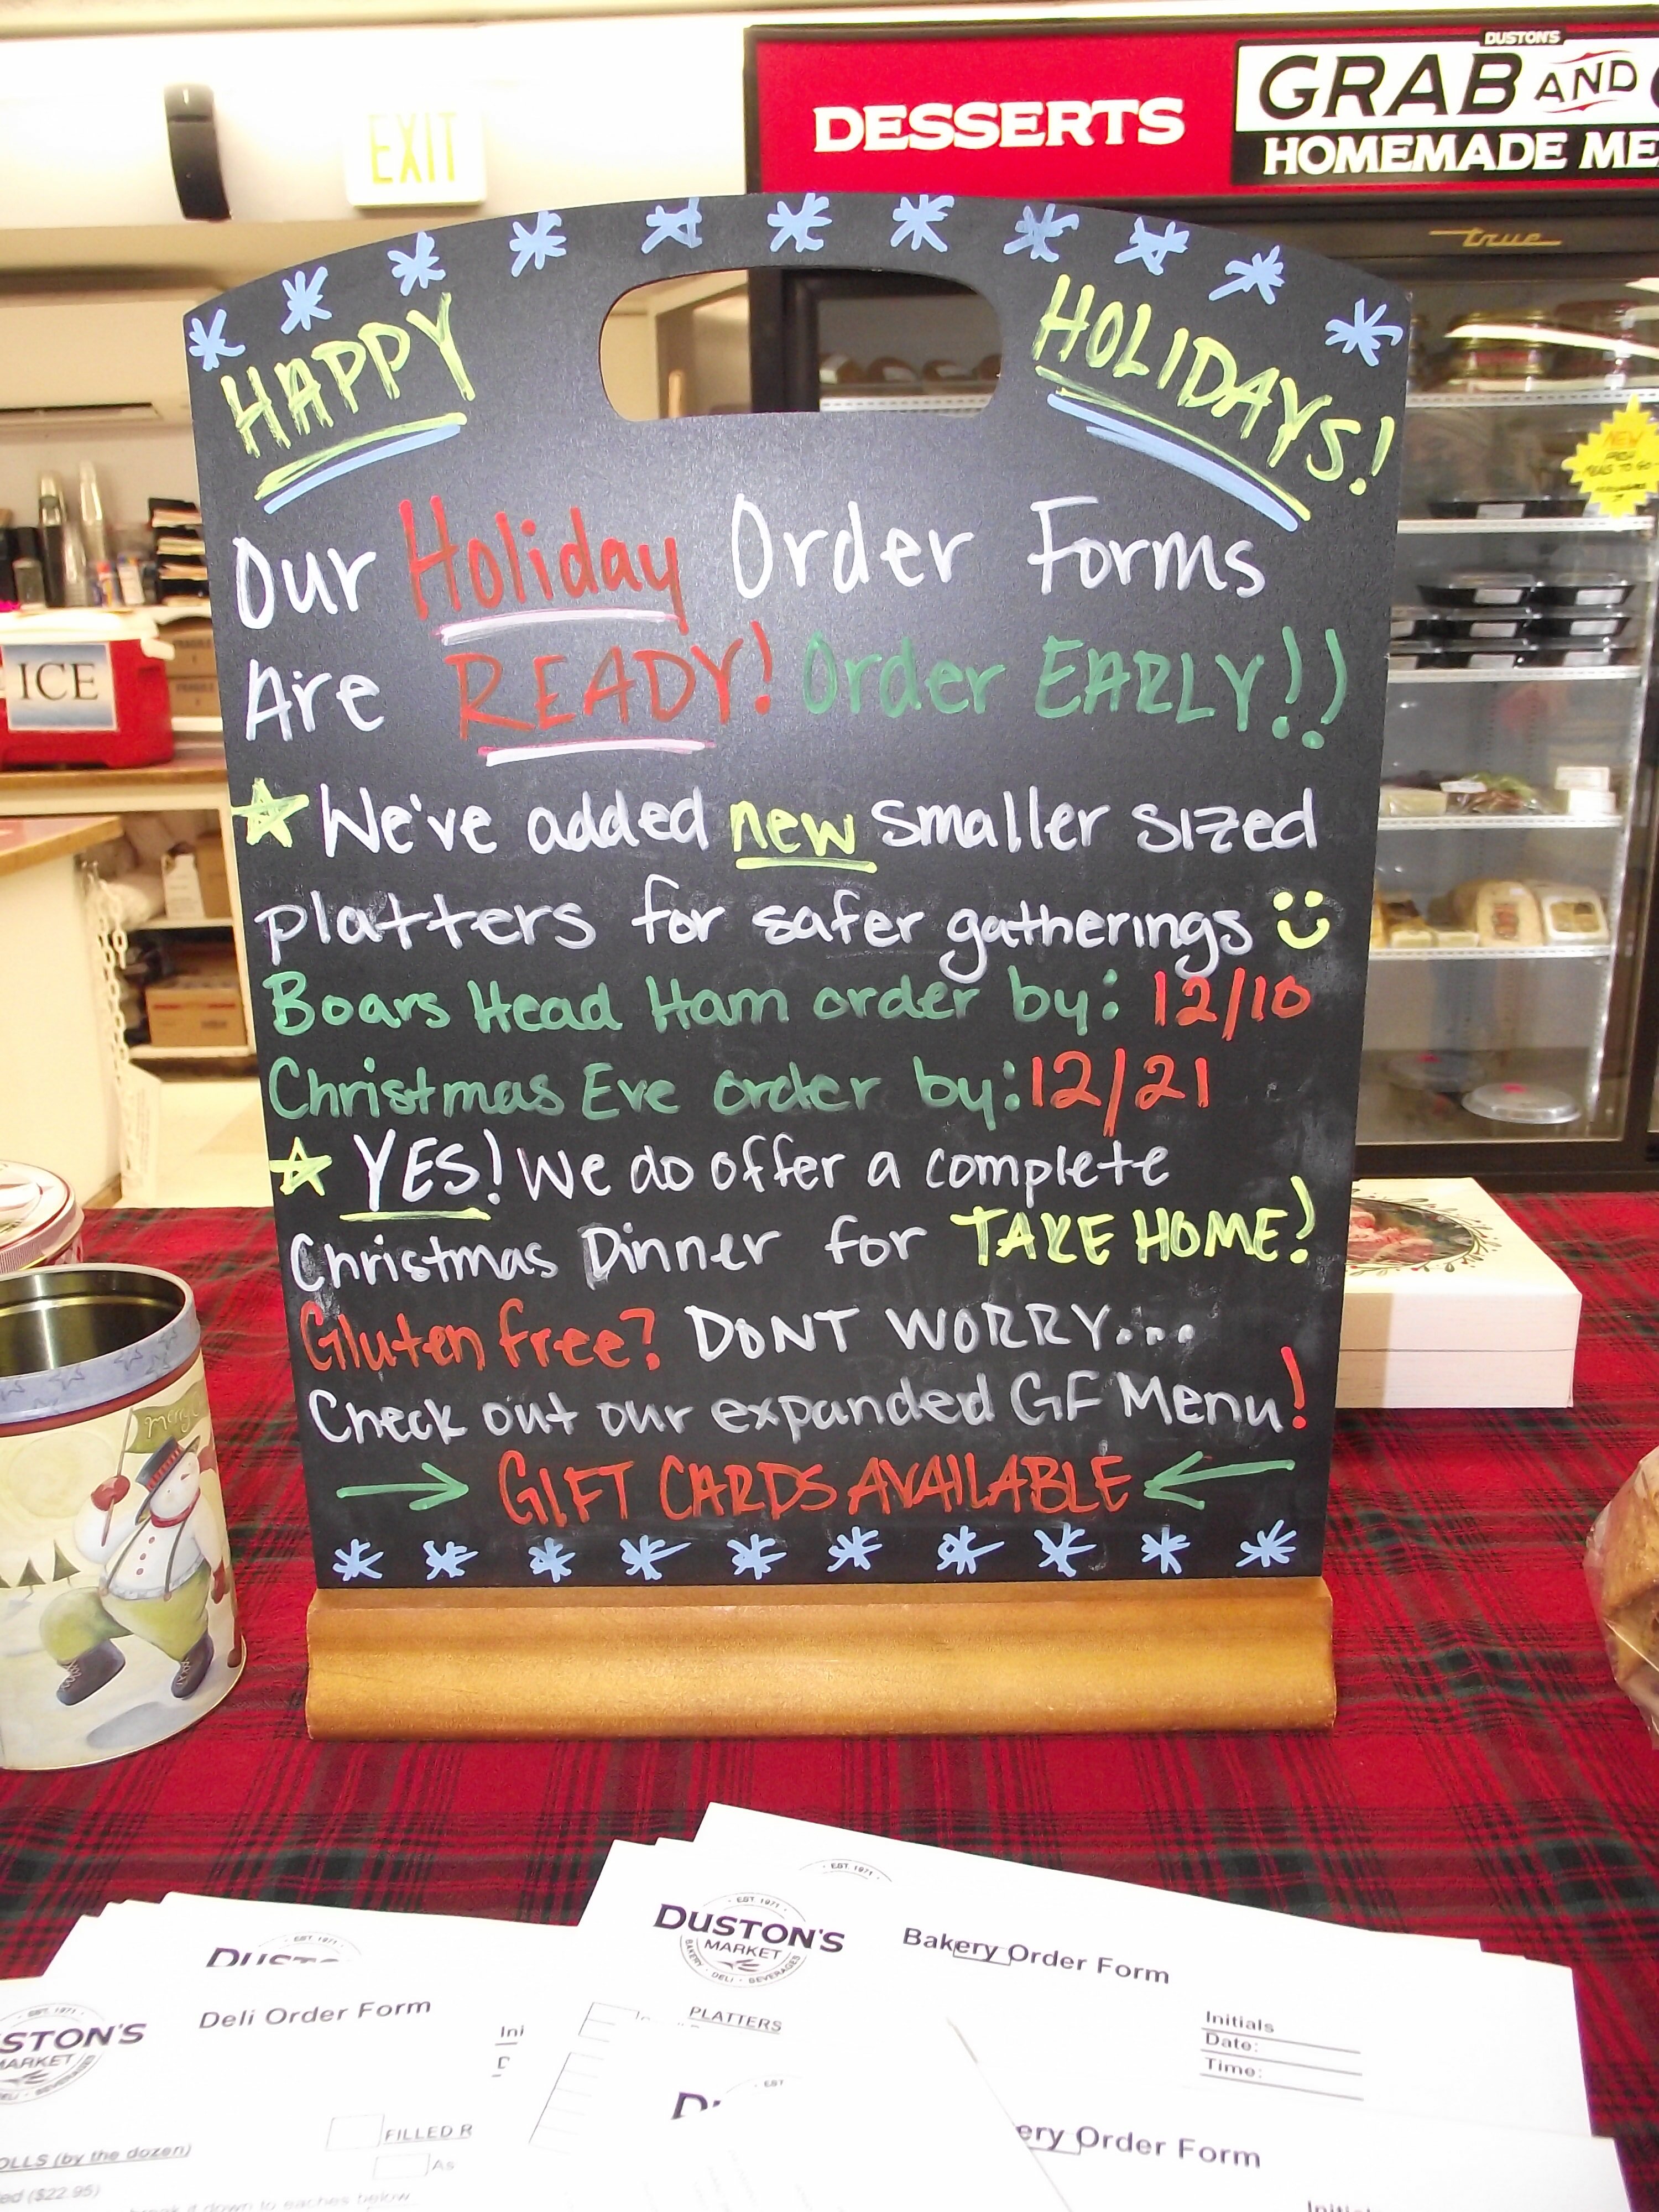 DUSTON'S
DESSERTS
GRAB AND
HOMEMADE
EXIT
true
HAPPY
HOLIDAYS!
NEW
ICE
Our Holiday Order Forms
Are READY! Order EARLY!!
We've added new smaller sized
platters for safer gatherings
Boars Head Ham order by: 12/10
Christmas Eve order by: 12/21
YES! We do offer a complete
Christmas Dinner for TAKE HOME!
Gluten free? DONT WORRY...
Check out our expanded GF Menu!
GIFT CARDS AVAILABLE
EST. 1971
EST. 1971
DUSTON'S
MARKET
BAKERY · DELI · BEVERAGES
Bakery Order Form
PLATTERS
Initials
Date:
Time:
EST. 1971
Deli Order Form
EST. 1971
STON'S
ARKET
FILLED R
As
OLLS (by the dozen)
ed ($22.95)
break it down to eaches below
EST
ery Order Form